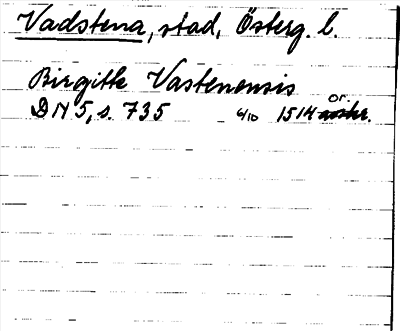 Vadstena, stad, Österg. l.
Birgitte Vastenensis
or.
DN 5, s. 735 6/10 1514